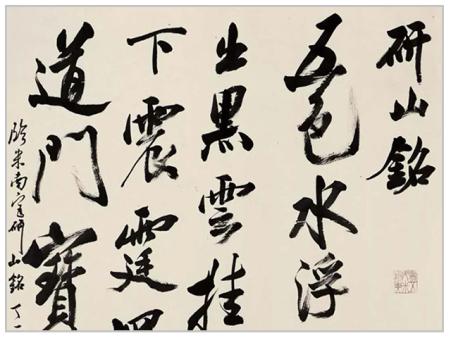 研山銘
五色水浮
出黑雲挂
下震霆
道門寶
臨米南宮研山銘